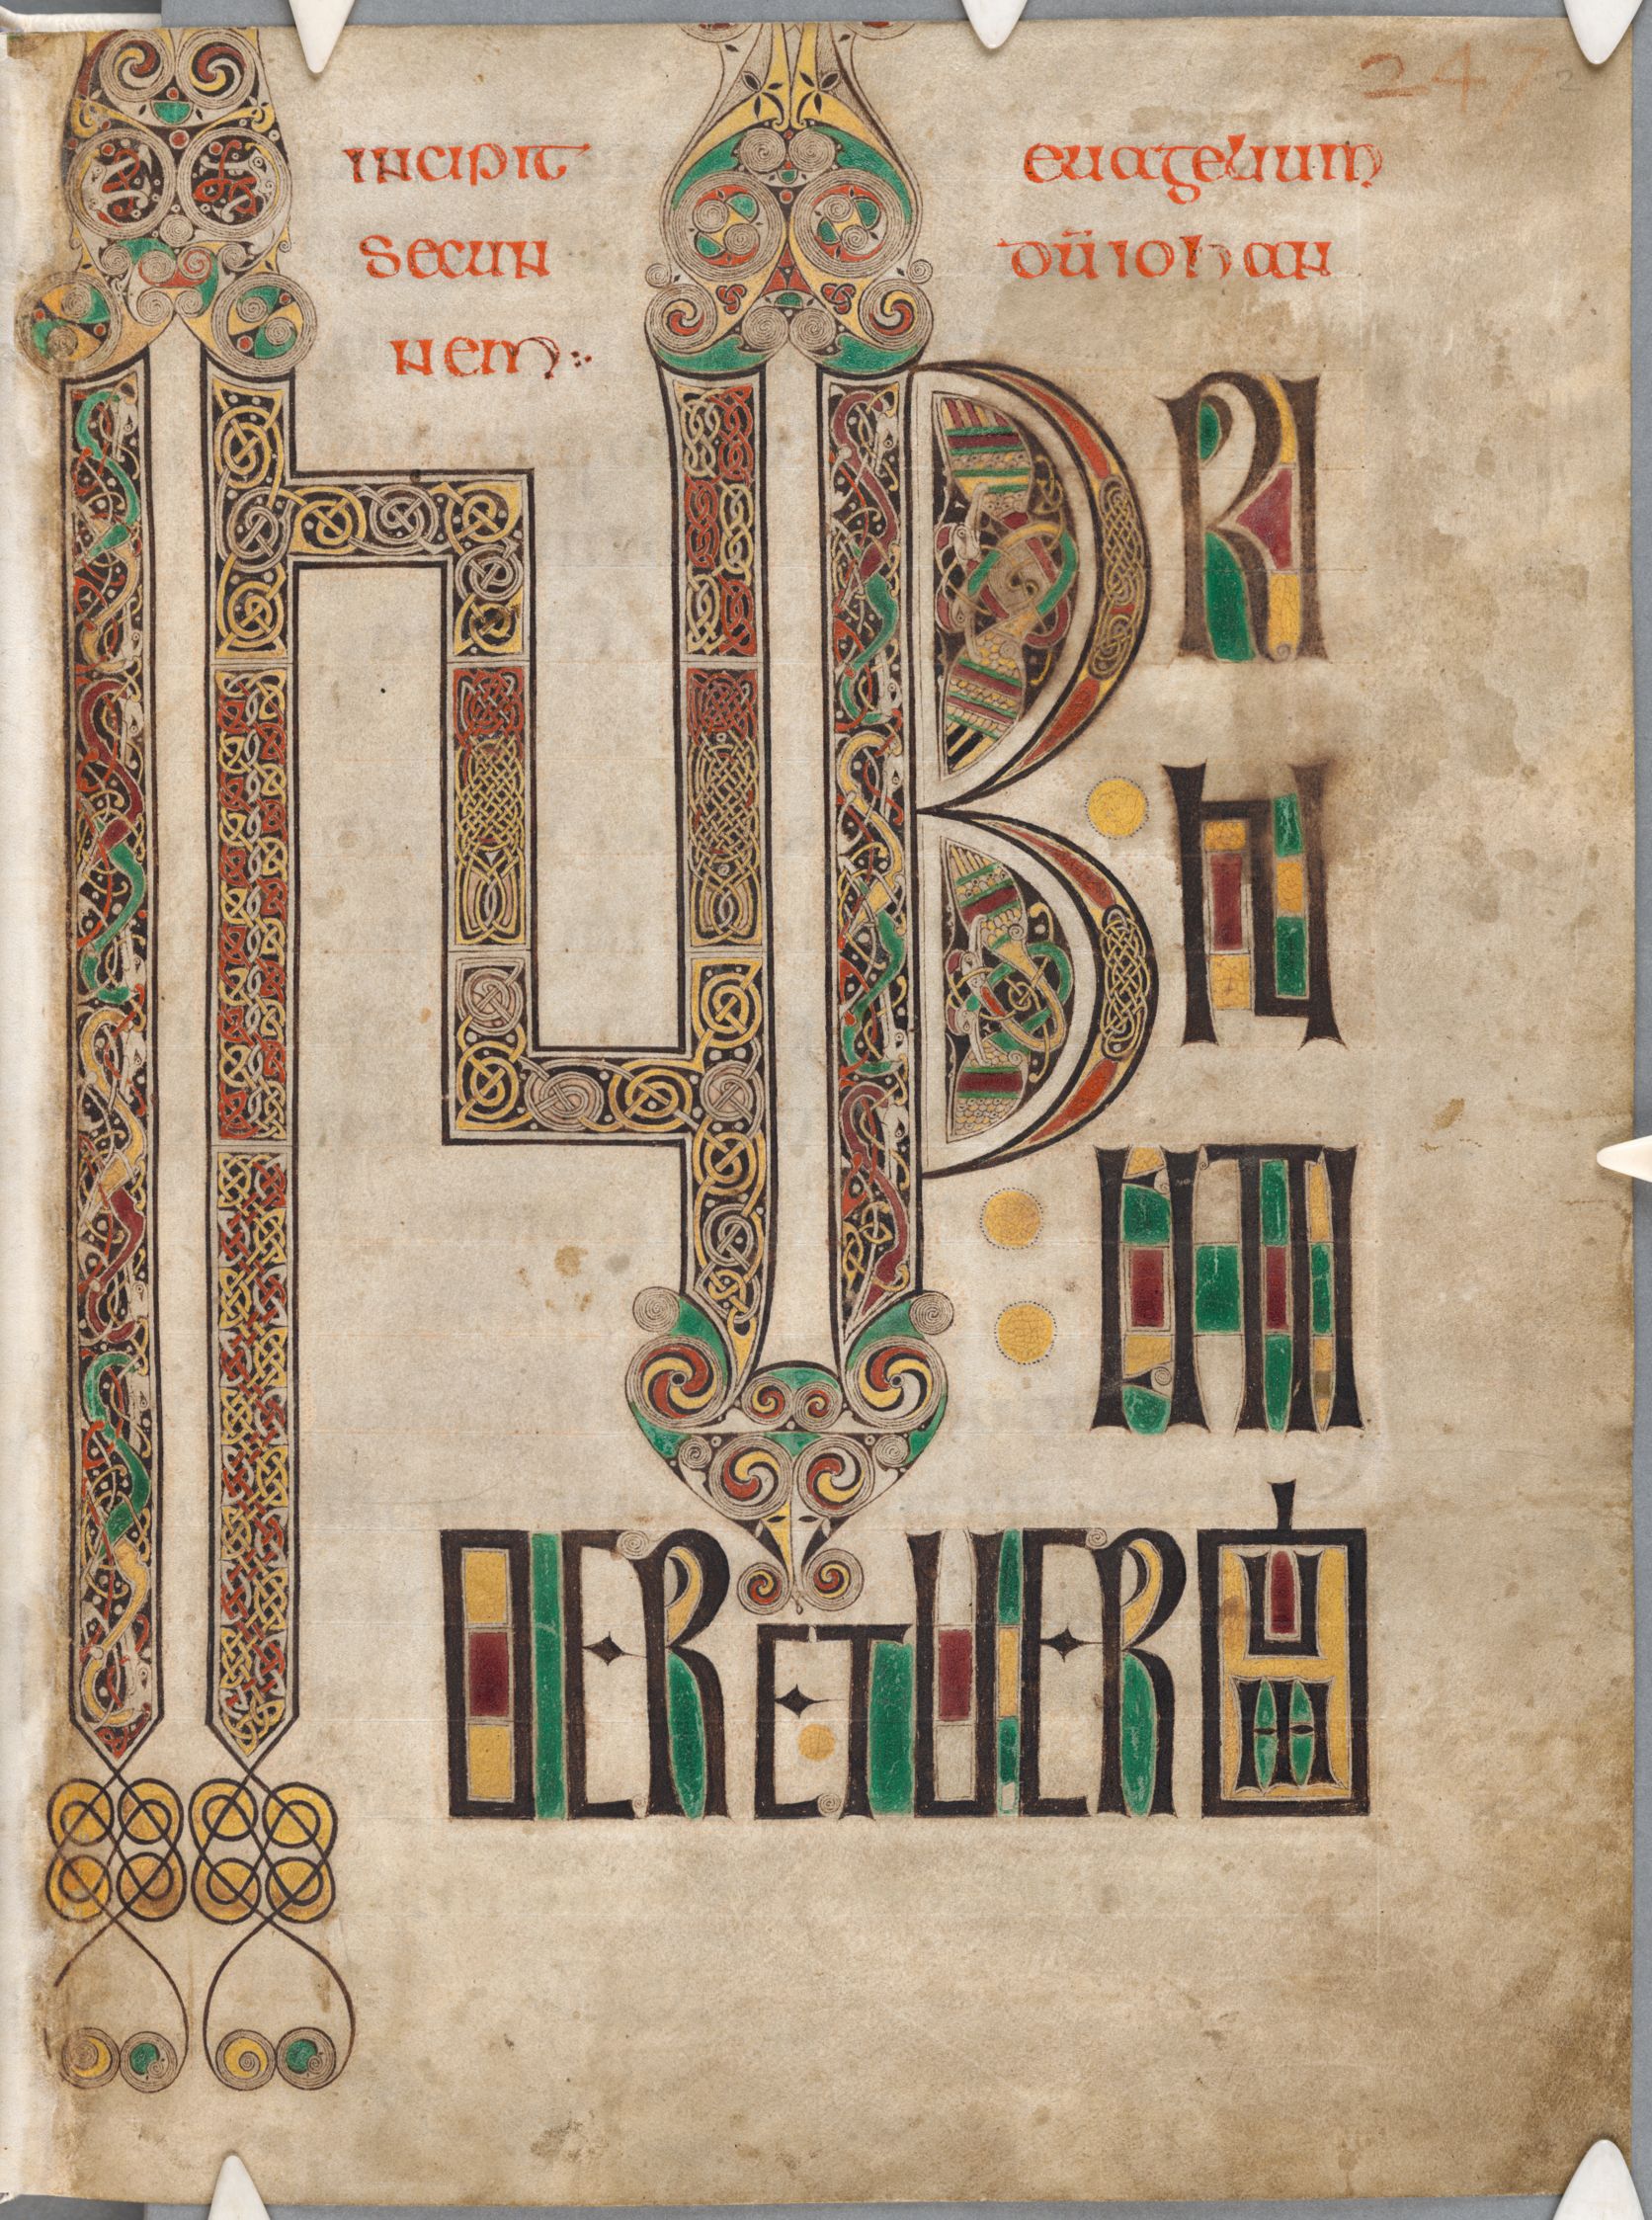 247 2
incipit euagelium
secun dū iohan
nem
IN P RI
N
ER ET UERbUM